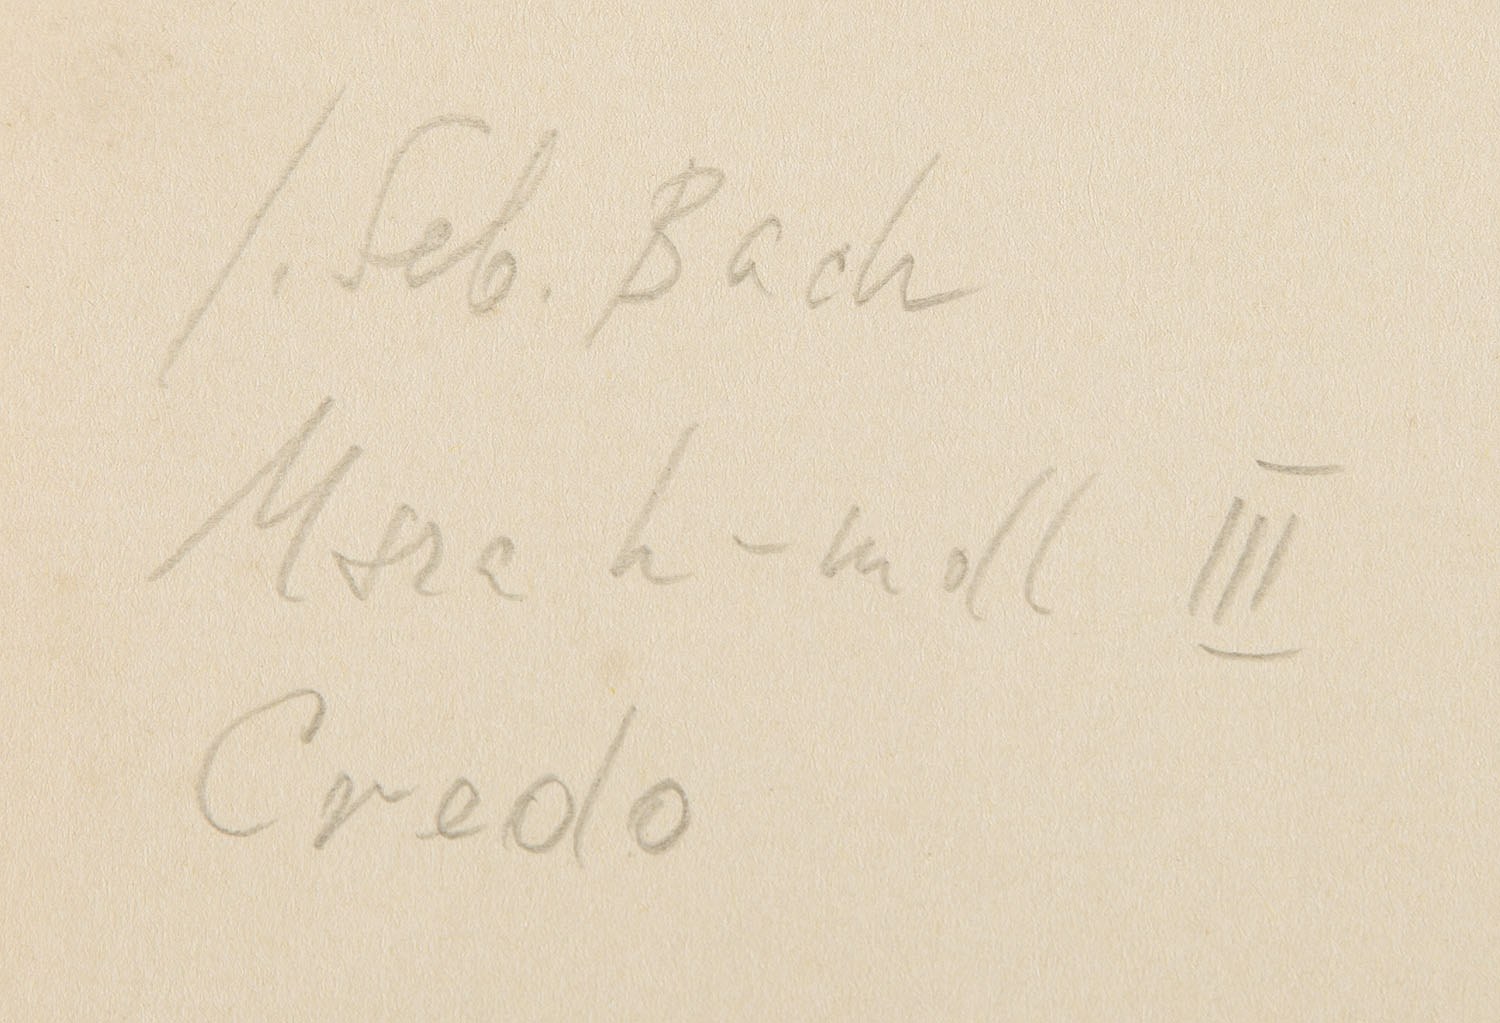 J. Seb. Bach
Messa h-moll III
Credo